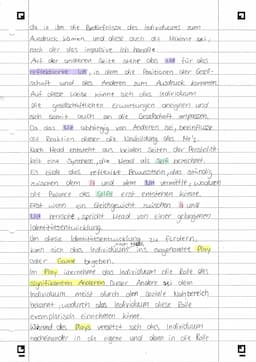 da in ihm die Bedürfnisse des Individuums zum
Ausdruck kämen und diese auch als Miame sei,
nach der das impulsive Ich handle.
Auf der anderen Seite stehe das Me für das
reflektierte Ich, in dem die Positionen der Gesell-
schaft und des Anderen zum Ausdruck kommen.
Auf diese Weise könne sich das Individuum
die gesellschaftlichen Erwartungen aneignen und
sich somit auch an die Gesellschaft anpassen.
Da das Me abhängig von Anderen sei, beeinflusse
die Reaktion dieser die Neubildung des Me's.
Nach Mead entsteht aus beiden Seiten der Persönlich-
keit eine Synthese, die Mead als Self bezeichnet.
Es bilde das reflexive Bewusstsein, das ständig
zwischen dem I und dem Me vermittle, wodurch
die Balance des Selfs erst entstehen könne.
Erst wenn ein Gleichgewicht zwischen I und
Me herrsche, spricht Mead von einer gelungenen
Identitätsentwicklung.
Um diese Identitätsentwicklung zu fördern,
kann sich das Individuum ins sogenannte Play
oder Game begeben.
Im Play übernehme das Individuum die Rolle des
signifikanten Anderen. Dieser Andere sei dem
Individuum meist durch den soziale Nahbereich
bekannt, wodurch das Individuum diese Rolle
exemplarisch einnehmen könne.
Während des Plays versetzt sich das Individuum
nacheinander in die eigene und dann in die Rolle